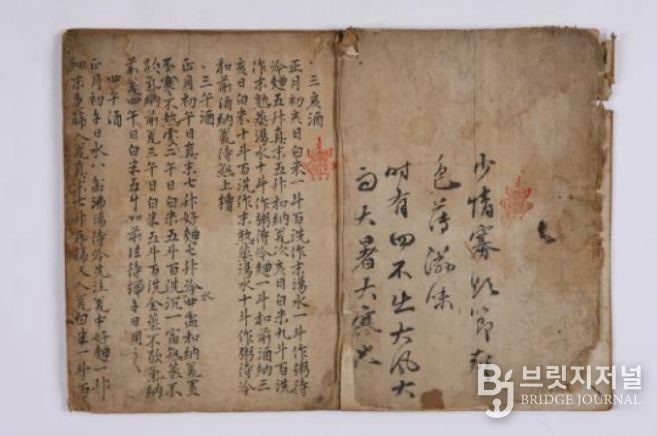 少情寡慾節聲
色薄滋味
時有四不出大風大
雨大暑大寒也
三亥酒
正月初亥日白米一斗百洗作末湯水一斗作粥待
冷麯五升真末五升和納瓮次亥日白米九斗百洗
作末熟蒸湯水十斗作粥待冷麯一斗和前酒納三
亥日白米十斗百洗作末熟蒸湯水十斗作粥待冷
和前酒納瓮待熟上槽
三午酒
正月初午日真末七升好麯七升冷水四盆和納瓮置
不寒不熱處二午日白米五斗百洗沉一宿熟蒸不
歇氣納前瓮三午日白米五斗百洗全蒸不歇氣納
前瓮四午日白米五斗如前法待端午日用之
四午酒
正月初午日水八盆沸湯待冷先注瓮中好麯一升
細末重篩入瓮真末七升再篩又入瓮白米一斗百
브릿지저널
BRIDGE JOURNAL